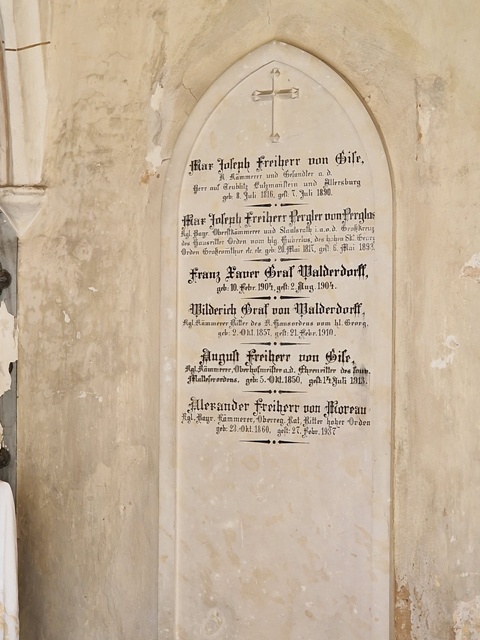 Max Joseph Freiherr von Gise,
K. Kämmerer und Gesandter a.d.
Herr auf Teublitz Lutzmanstein und Allersburg
geb. 8. Juli 1816, gest. 7. Juli 1890.
Max Joseph Freiherr Pergler von Perglas
Kgl. Bayr. Oberstkämmerer und Staatsrath i.a.o.d. Großkreuz
des Hausritter Orden vom hlg. Hubertus, des hohen St. Georg
Orden Großcomthur etc. etc. geb. 20. Mai 1817, gest. 6. Mai 1893.
Franz Xaver Graf Walderdorff,
geb: 10. Febr. 1904, gest: 2. Aug. 1904.
Wilderich Graf von Walderdorff,
Kgl. Kämmerer, Ritter des K. Hausordens vom hl. Georg,
geb. 2. Okt. 1837, gest: 21. Febr. 1910.
August Freiherr von Gise,
Kgl. Kämmerer, Oberhofmeister a.d. Ehrenritter des souv.
Malteserordens. geb: 5. Okt. 1850, gest. 14. Juli 1913.
Alexander Freiherr von Moreau
Kgl. Bayr. Kämmerer, Oberreg. Rat, Ritter hoher Orden
geb: 23. Okt. 1860, gest: 27. Febr. 1937